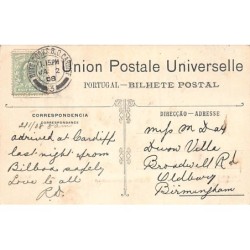 Union Postale Universelle
PORTUGAL - BILHETE POSTAL
CORRESPONDENCIA
DIRECÇÃO - ADRESSE
arrived at Cardiff
last night from
Bilboa safely
Love to all
Miss M Day
Devon Villa
Broadwell Rd
Oldbury
Birmingham